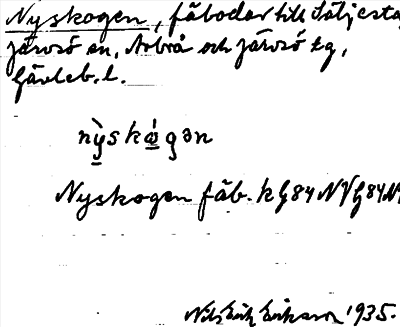 Nyskogen, fäbodar till Säljesta
Järvsö sn, Arbrå och Järvsö tg,
Gävleb. l.
nỳskὼgən
Nyskogen fäb. k G84NV G84N
Nils Erik Eriksson 1935.